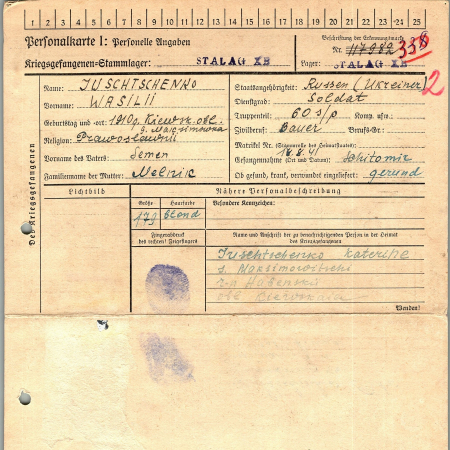 1 2 3 4 5 6 7 8 9 10 11 12 13 14 15 16 17 18 19 20 21 22 23 24 25
Personalkarte I: Personelle Angaben
Kriegsgefangenen-Stammlager: STALAG XB
Beschriftung der Erkennungsmarke
Nr. 117982 338
Lager: STALAG XB
2
Des Kriegsgefangenen
Name: JUSCHTSCHENKO
Vorname: WASILII
Geburtstag und -ort: 1910, Kiewsk. obl.
g. Maksimowka
Religion: Prawoslawnii
Vorname des Vaters: Semen
Familienname der Mutter:
Staatsangehörigkeit: Russen (Ukrainer)
Dienstgrad: Soldat
Truppenteil: 60 s/p Komp. usw.:
Zivilberuf: Bauer Berufs-Gr.:
Matrikel Nr. (Stammrolle des Heimatstaates):
Gefangennahme (Ort und Datum): 18.8.41 Schitomir
Ob gesund, krank, verwundet eingeliefert: gesund
Lichtbild
Nähere Personalbeschreibung
Größe
Haarfarbe
Besondere Kennzeichen:
179
blond
Fingerabdruck
des rechten! Zeigefingers
Name und Anschrift der zu benachrichtigenden Person in der Heimat
des Kriegsgefangenen
Juschtschenko Katerine
s. Maksimowitschi
Wenden!